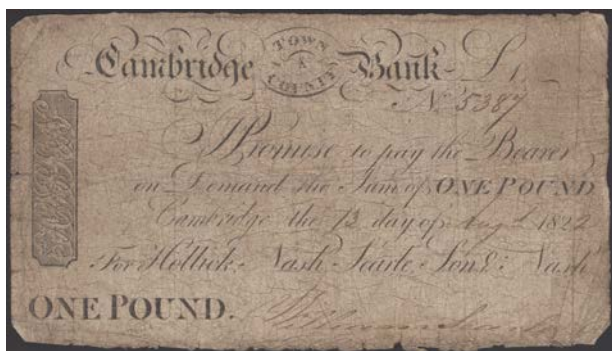 Cambridge TOWN & COUNTY Bank £1
No. 5387
I Promise to pay the Bearer
on Demand the Sum of ONE POUND
Cambridge the 13 day of Aug 1822
For Hollick, Nash, Searle, Son & Nash
ONE POUND.